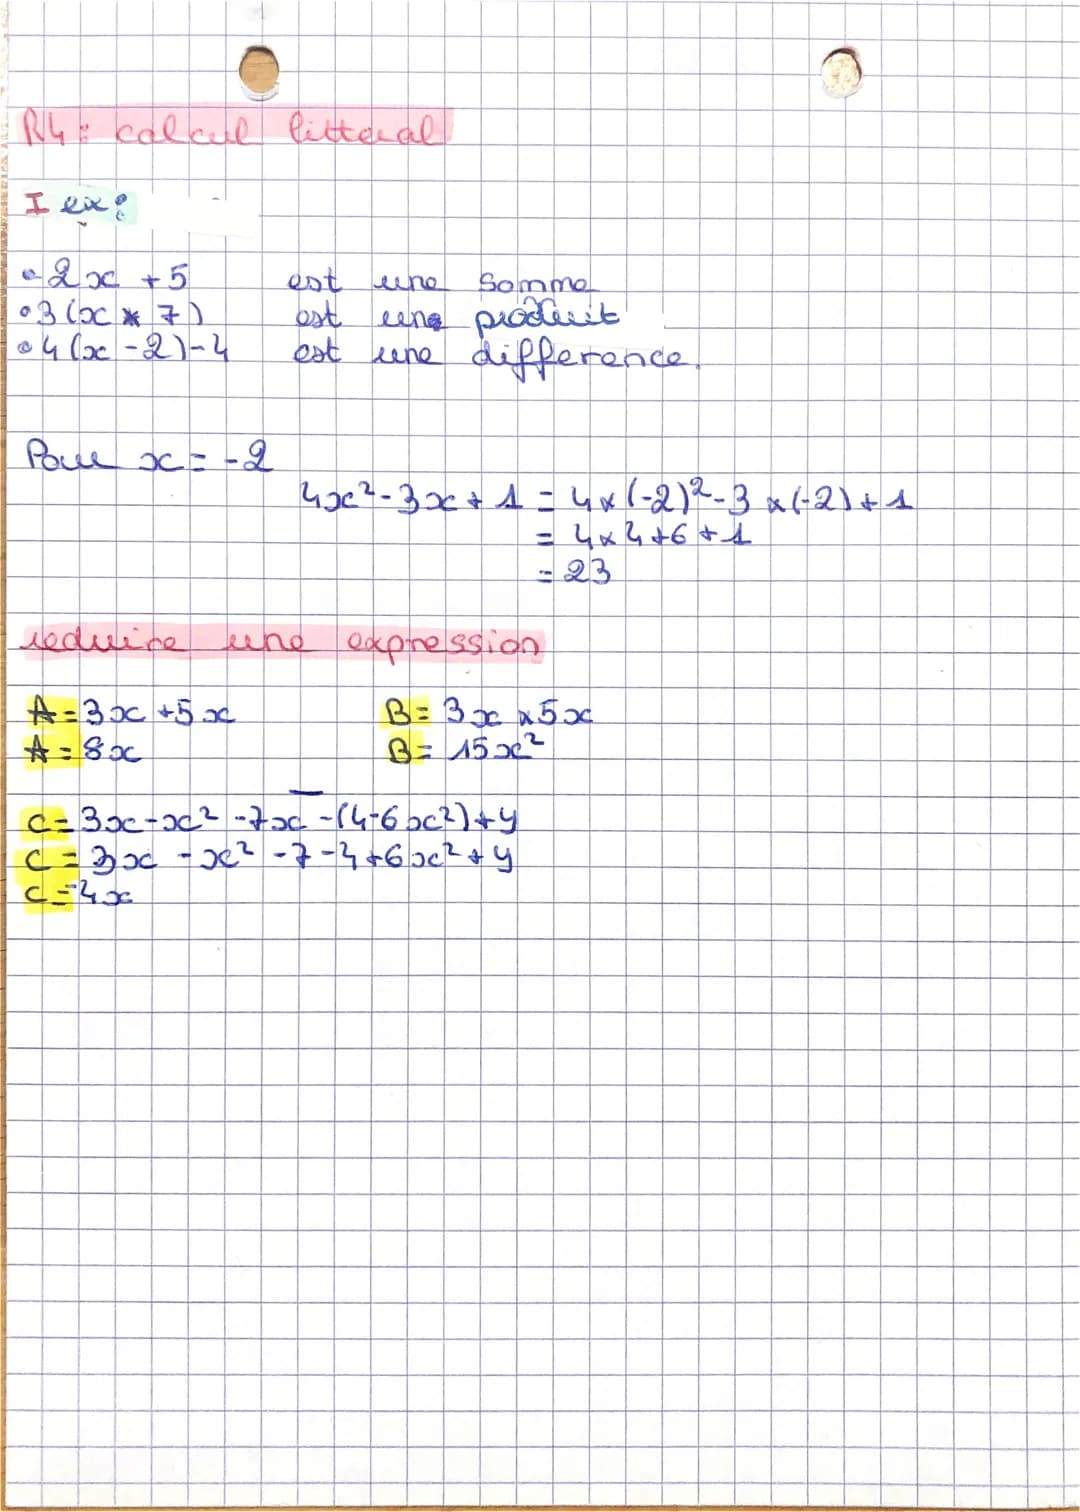 R4 : calcul litteral
I ex :
• 2x + 5 est une somme
• 3 (x * 7) est une produit
• 4 (x - 2) - 4 est une difference.
Pour x = -2
4x² - 3x + 1 = 4 x (-2)² - 3 x (-2) + 1
= 4 x 4 + 6 + 1
= 23
reduire une expression
A = 3x + 5x B = 3x x 5x
A = 8x B = 15x²
C = 3x - x² - 7x - (4 - 6x²) + y
C = 3x - x² - 7 - 4 + 6x² + y
C = -4x